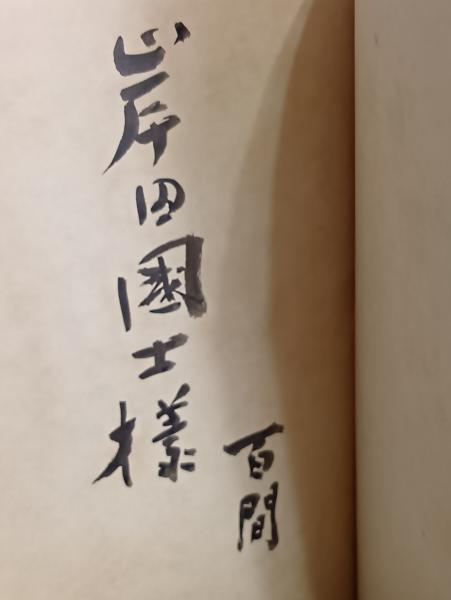 岸田國士様
百間